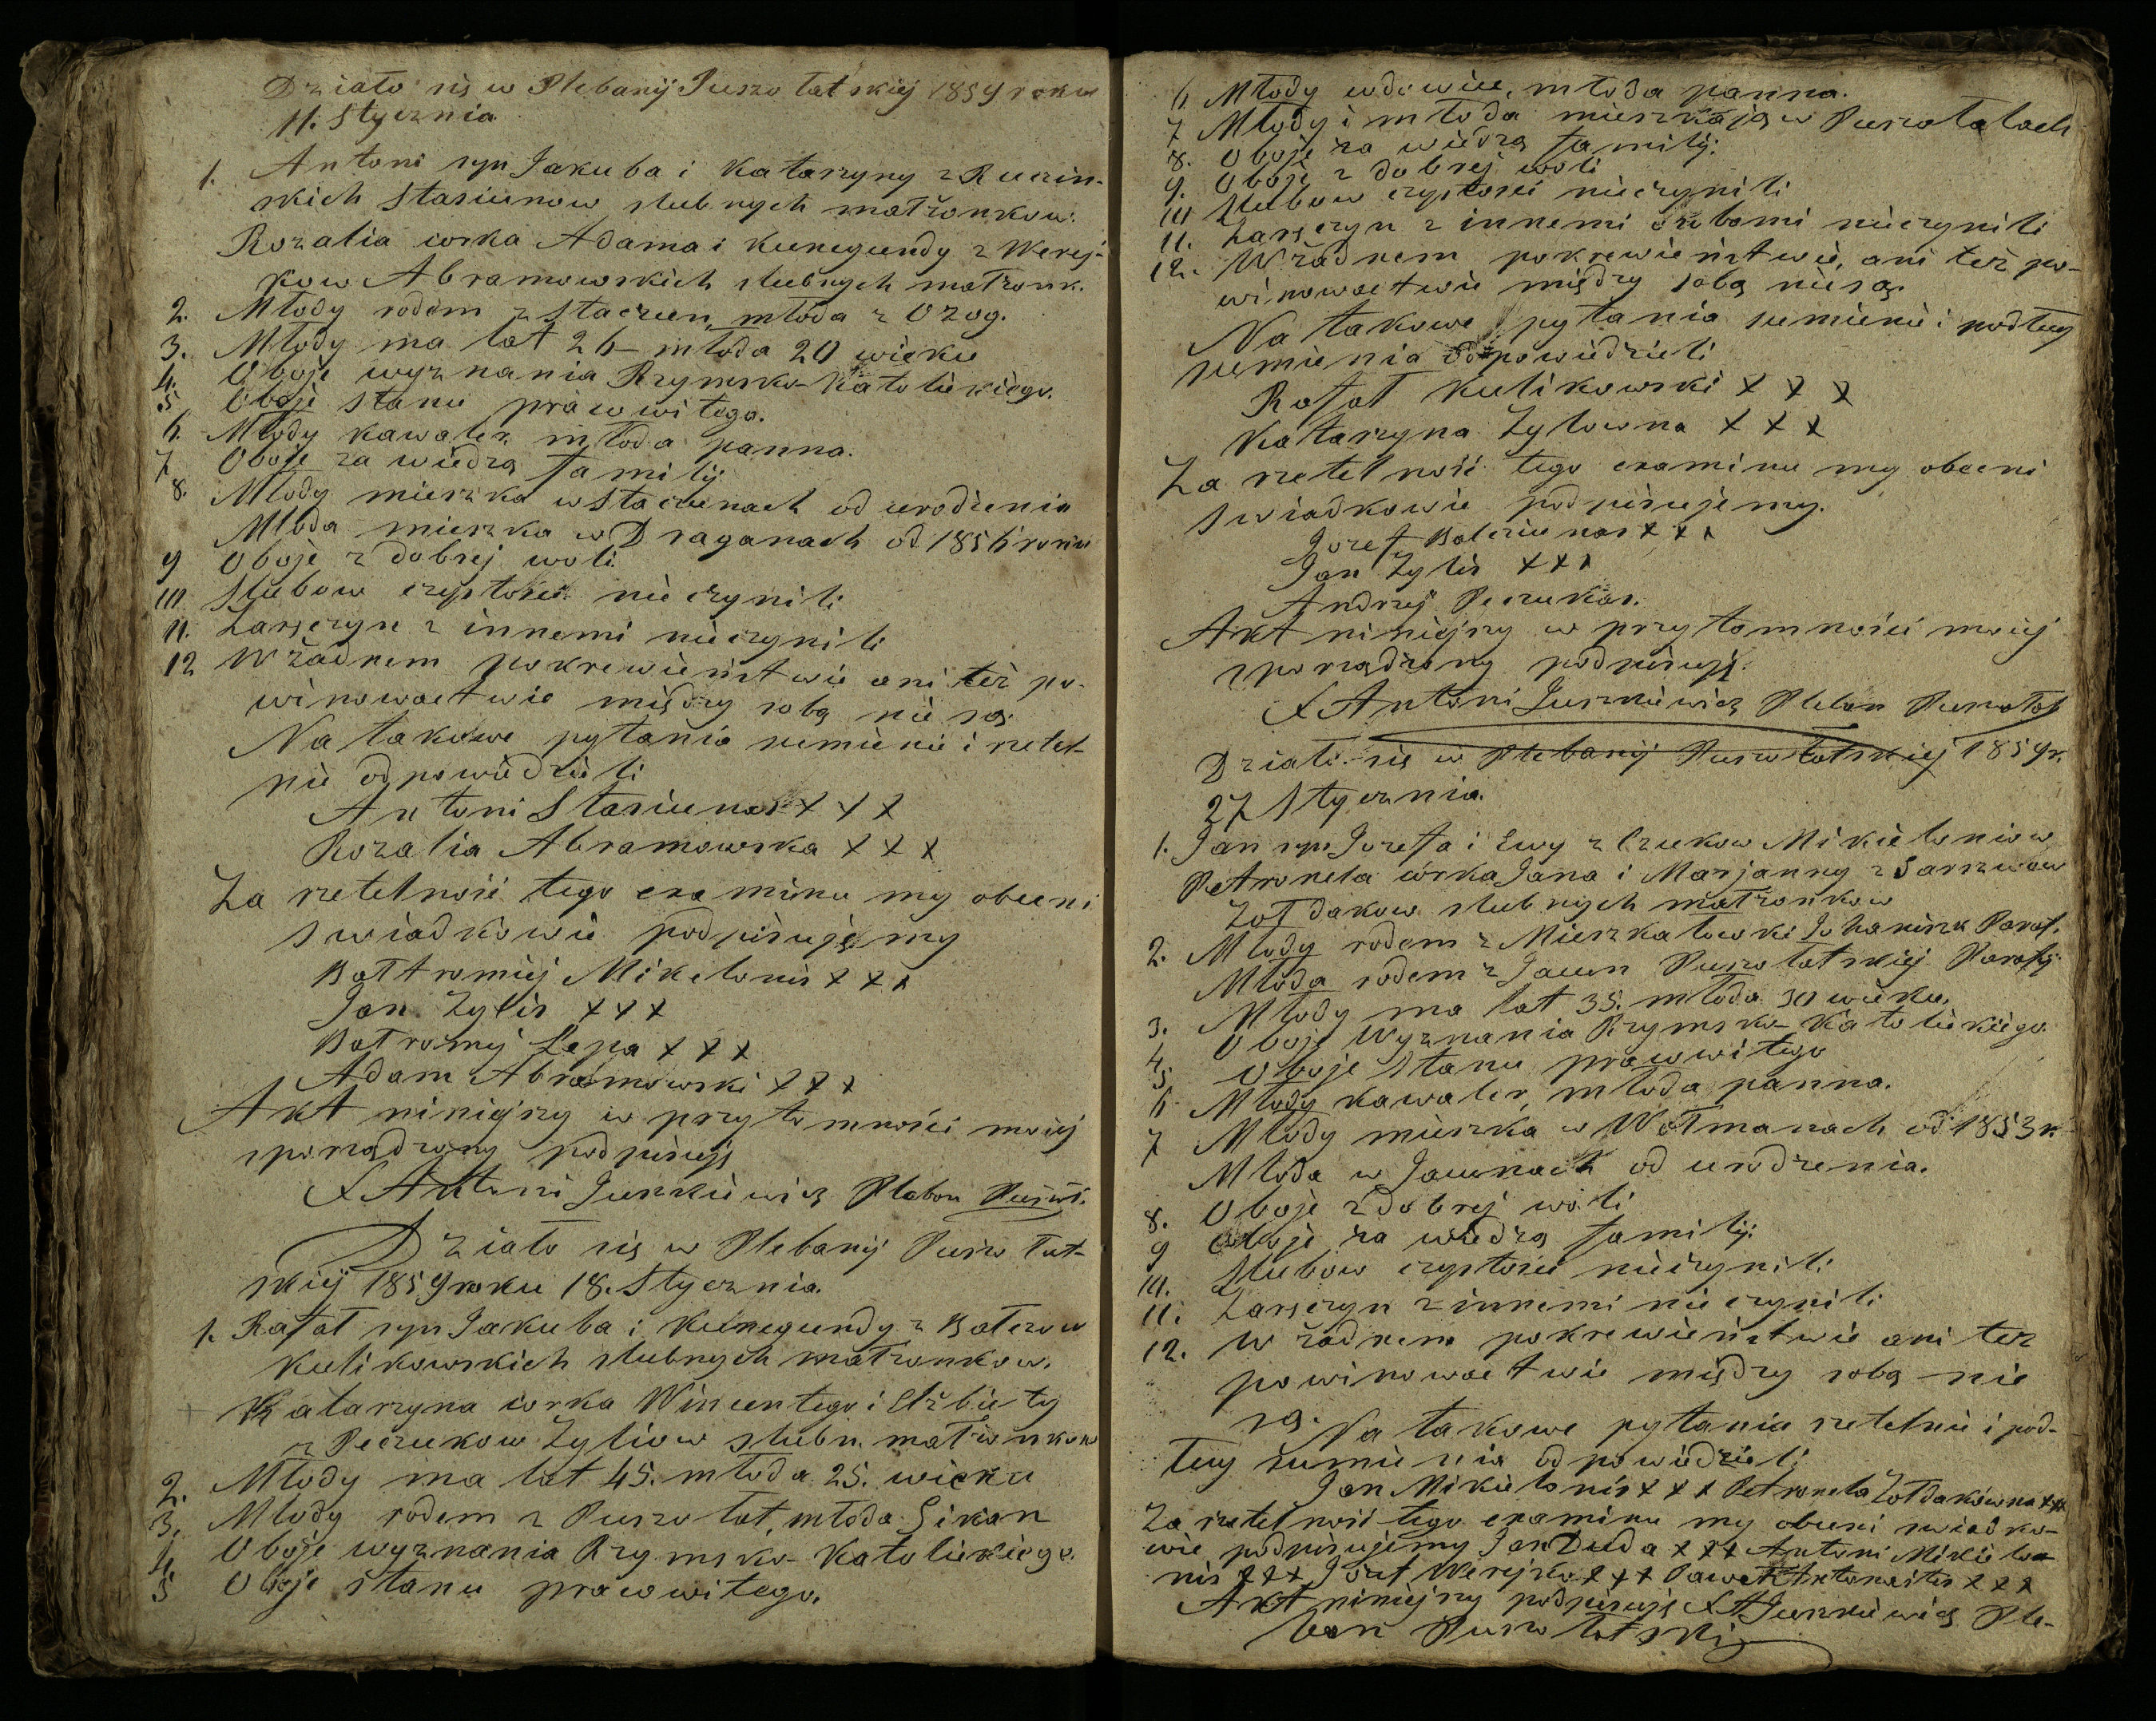 Działo się w Plebanij Puszołatskiej 1859 roku
11. Stycznia
1. Antoni syn Jakuba i Katarzyny z Ruczin-
skich Stasiunow slubnych małżonkow.
Rozalia corka Adama i Kunegundy z Werej-
kow Abramowskich slubnych małżonk.
2. Młody rodem z Staczun, młoda z Ozog.
3. Młody ma lat 26 – młoda 20 wieku
4. Oboje wyznania Rzymsko-Katolickiego.
5 Oboje stanu prawowitego.
6. Młody kawaler, młoda panna.
7 Oboje za wiedzą familij
8. Młody mieszka w Staczunach od urodzenia
Młoda mieszka w Draganach od 1856 roku
9 Oboje z dobrej woli
10 Slubow czystosci nie czynili
11. Zaręczyn z innemi nieczynili
12 W żadnem pokrewieństwie ani też po-
winowactwie między sobą nie są.
Na takowe pytania sumienie i rzetel-
nie odpowiedzieli
Antoni Stasiunas x x x
Rozalia Abramowska x x x
Za rzetelność tego examinu my obecni
swiadkowie podpisujemy
Bałtromiej Mikelonis x x x
Jan Zylis x x x
Batromiej Łapa x x x
Adam Abramowski x x x
Akt niniejszy w przytomności mojej
sporządzony podpisuję
X Antoni Juszkiewicz Pleban Puszoł.
Działo się w Plebanij Puszołat-
skiej 1859 roku 18. Stycznia.
1. Rafał syn Jakuba i Kunegundy z Batezow
Kulikowskich slubnych małżonkow.
Katarzyna corka Wincentego i Elżbiety
z Peczukow Zyliow slubn. małżonkow
2. Młody ma lat 45. młoda 25. wieku
3. Młody rodem z Puszołat, młoda Sikan
4. Oboje wyznania Rzymsko-Katolickiego.
5 Oboje stanu prawowitego.
6 Młody wdowiec, młoda panna.
7 Młody i młoda mieszkają w Puszołatach
8. Oboje za wiedzą familij.
9. Oboje z dobrej woli
10 Slubow czystosci nieczynili
11. Zaręczyn z innemi osobami nieczynili
12. W żadnem pokrewieństwie, ani też po-
winowactwie między sobą niesą.
Na takowe pytania sumienie i podług
sumienia odpowiedzieli
Rafał Kulikowski x x x
Katarzyna Zylowna x x x
Za rzetelność tego examinu my obecni
swiadkowie podpisujemy.
Jozef Balcziunas x x x
Jan Zylis x x x
Andrzej Peczukas.
Akt niniejszy w przytomności mojej
sporządzony podpisuję.
X Antoni Juszkiewicz Pleban Puszołat
Działo się w Plebanij Puszołatskiej 1859 r.
27 Stycznia.
1. Jan syn Jozefa i Ewy z Czukow Mikieloniow
Petronela córka Jana i Marjanny z Sarszwow
Zołdakow slubnych małżonkow
2. Młody rodem z Mieszkałowki Johaniszk Paraf.
Młoda rodem z Jawn Puszołatskiej Parafij
3. Młody ma lat 35. młoda 30 wieku.
4 Oboje Wyznania Rzymsko-Katolickiego
5 Oboje Stanu prawowitego
6 Młody kawaler, młoda panna.
7 Młody mieszka w Wołmanach od 1853 r.
Młoda w Jawnach od urodzenia.
8. Oboje z dobrej woli
9 Oboje za wiedzą familij:
10. Slubow czystosci nieczynili
11. Zaręczyn z innemi nie czynili
12. W żadnem pokrewieństwie ani też
powinowactwie między sobą nie
są. Na takowe pytania rzetelnie i pod-
ług sumienia odpowiedzieli
Jan Mikielonis x x x Petronela Zołdakówna x x x
Za rzetelność tego examinu my obecni swiadko-
wie podpisujemy Jan Duda x x x Antoni Mikielo-
nis x x x Jozef Werejko x x x Paweł x x x
Akt niniejszy podpisuję X A Juszkiewicz Ple-
ban Puszołatski